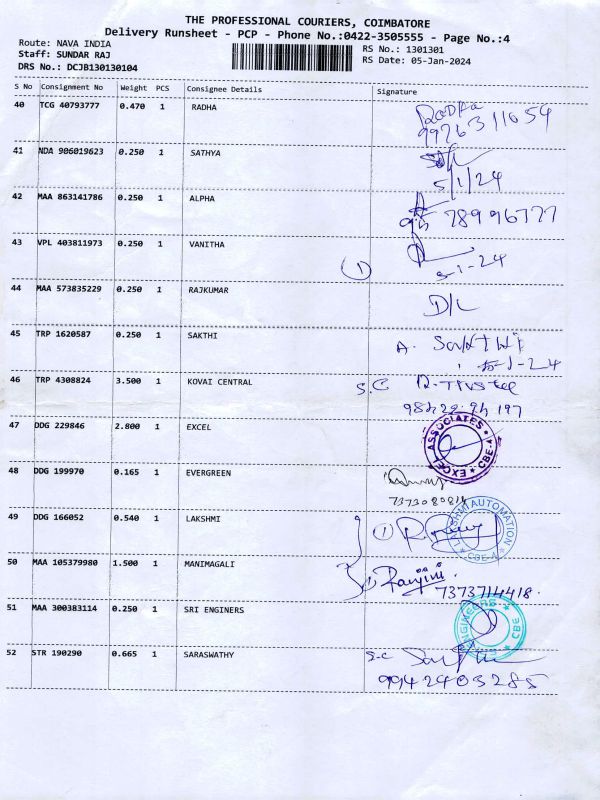 THE PROFESSIONAL COURIERS, COIMBATORE
Delivery Runsheet - PCP - Phone No.:0422-3505555 - Page No.:4
Route: NAVA INDIA
RS No.: 1301301
Staff: SUNDAR RAJ
RS Date: 05-Jan-2024
DRS No.: DCJB130130104
S No Consignment No Weight PCS Consignee Details Signature
40 TCG 40793777 0.470 1 RADHA
41 NDA 906019623 0.250 1 SATHYA
5/1/24
42 MAA 863141786 0.250 1 ALPHA
43 VPL 403811973 0.250 1 VANITHA
1 5-1-24
44 MAA 573835229 0.250 1 RAJKUMAR D/L
45 TRP 1620587 0.250 1 SAKTHI A.
46 TRP 4308824 3.500 1 KOVAI CENTRAL S.C
47 DDG 229846 2.800 1 EXCEL EXCEL ASSOCIATES CBE-4
48 DDG 199970 0.165 1 EVERGREEN
49 DDG 166052 0.540 1 LAKSHMI 1 LAKSHMI AUTOMATION CBE-4
50 MAA 105379980 1.500 1 MANIMAGALI Ranjini
7373714418
51 MAA 300383114 0.250 1 SRI ENGINERS ENGINEERS CBE
52 STR 190290 0.665 1 SARASWATHY S.C
9942403285